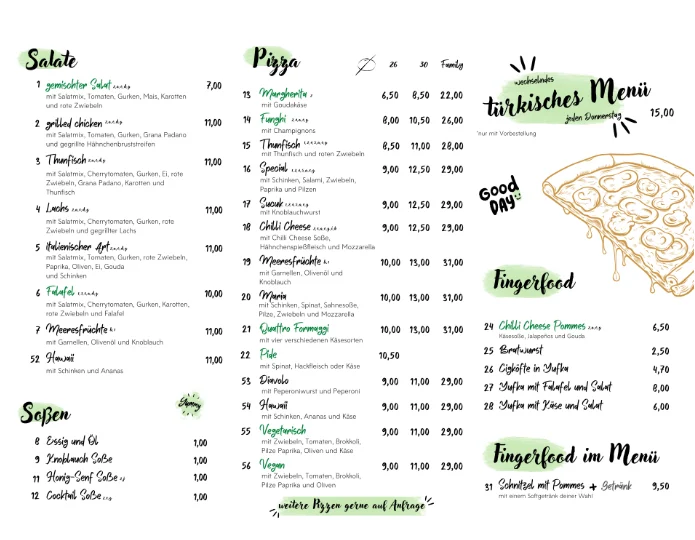 Salate
1 gemischter Salat 7,00
mit Salatmix, Tomaten, Gurken, Mais, Karotten
und rote Zwiebeln
2 grilled chicken 11,00
mit Salatmix, Tomaten, Gurken, Grana Padano
und gegrillte Hähnchenbruststreifen
3 Thunfisch 11,00
mit Salatmix, Cherrytomaten, Gurken, Ei, rote
Zwiebeln, Grana Padano, Karotten und
Thunfisch
4 Lachs 11,00
mit Salatmix, Cherrytomaten, Gurken, rote
Zwiebeln und gegrillter Lachs
5 italienischer Art 11,00
mit Salatmix, Tomaten, Gurken, rote Zwiebeln,
Paprika, Oliven, Ei, Gouda
und Schinken
6 Falafel 10,00
mit Salatmix, Cherrytomaten, Gurken, Karotten,
rote Zwiebeln und Falafel
7 Meeresfrüchte 11,00
mit Garnellen, Olivenöl und Knoblauch
52 Hawaii 11,00
mit Schinken und Ananas
Soßen
Yummy
8 Essig und Öl 1,00
9 Knoblauch Soße 1,00
11 Honig-Senf Soße 1,00
12 Cocktail Soße 1,00
Pizza
26 30 Family
13 Margherita 6,50 8,50 22,00
mit Goudakäse
14 Funghi 8,00 10,50 26,00
mit Champignons
15 Thunfisch 8,50 11,00 28,00
mit Thunfisch und roten Zwiebeln
16 Special 9,00 12,50 29,00
mit Schinken, Salami, Zwiebeln,
Paprika und Pilzen
17 Sucuk 9,00 12,50 29,00
mit Knoblauchwurst
18 Chilli Cheese 9,00 12,50 29,00
mit Chilli Cheese Soße,
Hähnchenspießfleisch und Mozzarella
19 Meeresfrüchte 10,00 13,00 31,00
mit Garnellen, Olivenöl und
Knoblauch
20 Maria 10,00 13,00 31,00
mit Schinken, Spinat, Sahnesoße,
Pilze, Zwiebeln und Mozzarella
21 Quattro Formaggi 10,00 13,00 31,00
mit vier verschiedenen Käsesorten
22 Pide 10,50
mit Spinat, Hackfleisch oder Käse
53 Diavolo 9,00 11,00 29,00
mit Peperoniwurst und Peperoni
54 Hawaii 9,00 11,00 29,00
mit Schinken, Ananas und Käse
55 Vegetarisch 9,00 11,00 29,00
mit Zwiebeln, Tomaten, Brokkoli,
Pilze Paprika, Oliven und Käse
56 Vegan 9,00 11,00 29,00
mit Zwiebeln, Tomaten, Brokkoli,
Pilze Paprika und Oliven
weitere Pizzen gerne auf Anfrage
wechselndes
türkisches Menü
jeden Donnerstag 15,00
nur mit Vorbestellung
GOOD
DAY
Fingerfood
24 Chilli Cheese Pommes 6,50
Käsesoße, Jalapeños und Gouda
25 Bratwurst 2,50
26 Cigköfte in Yufka 4,70
27 Yufka mit Falafel und Salat 8,00
28 Yufka mit Käse und Salat 6,00
Fingerfood im Menü
31 Schnitzel mit Pommes + Getränk 9,50
mit einem Softgetränk deiner Wahl